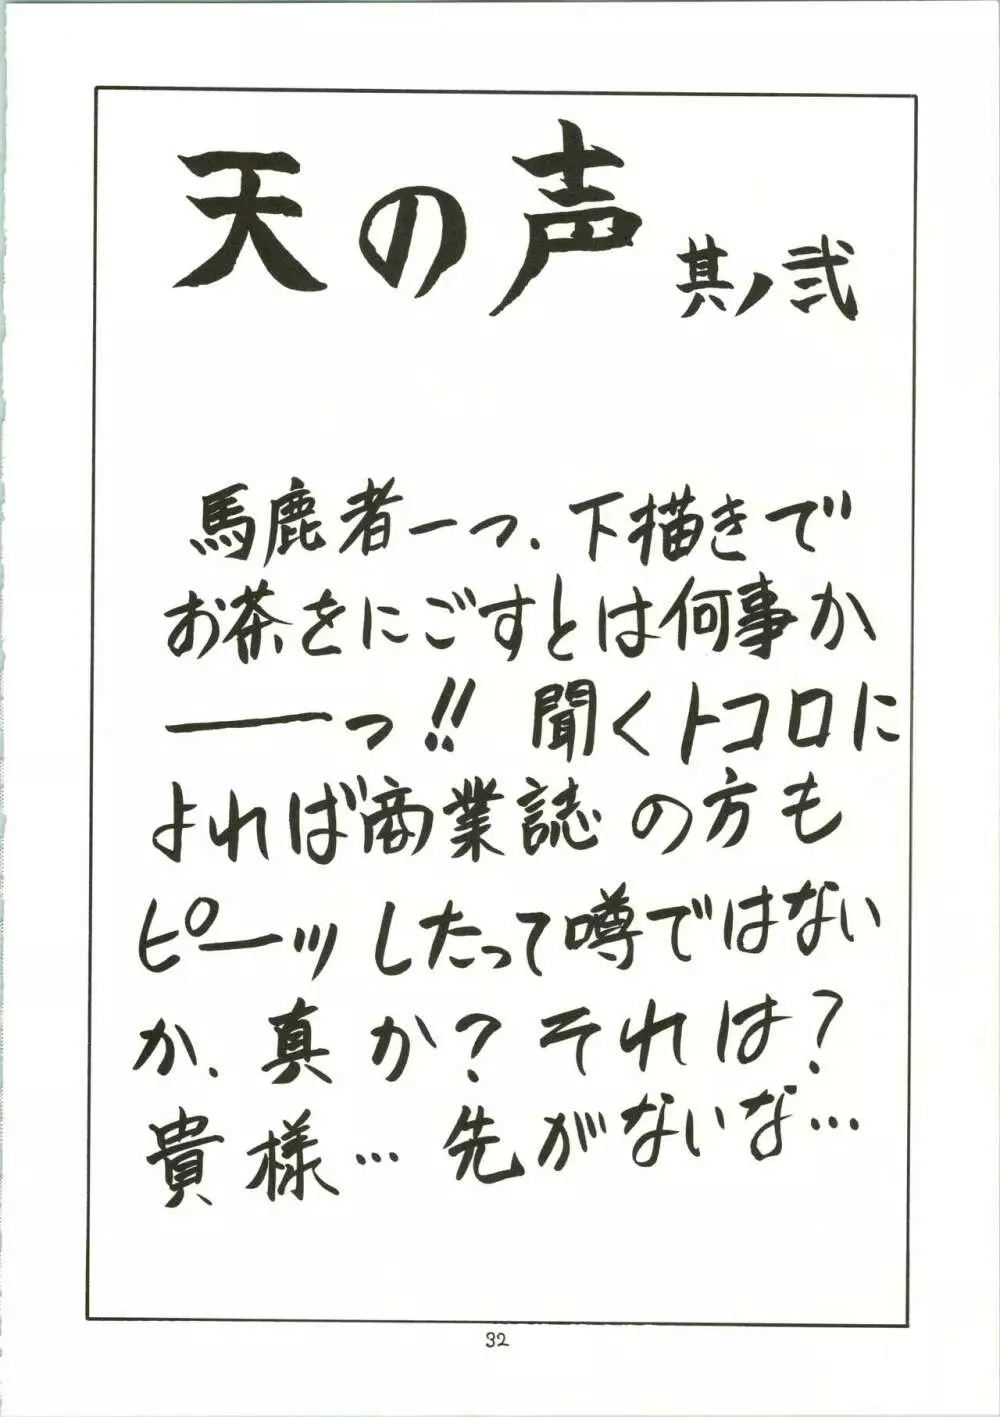 天の声 其ノ弐
馬鹿者ーっ.下描きで
お茶をにごすとは何事か
――っ!! 聞くトコロに
よれば商業誌の方も
ピーッしたって噂ではない
か.真か?それは?
貴様…先がないな…
32